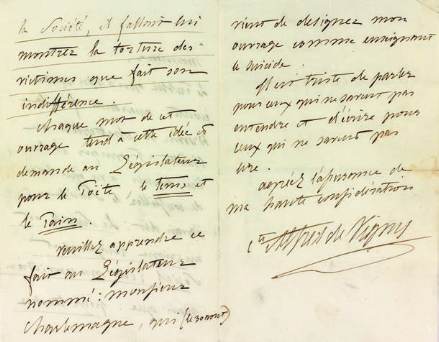 la Société, il fallait lui
montrer la torture des
victimes que fait son
indifférence.
Chaque mot de cet
ouvrage tend à cette idée et
demande au Législateur
pour le Poëte le Tems et
le Pain.
veuillez apprendre ce
fait au Législateur
nommé : monsieur
Charlemagne, qui
vient de désigner mon
ouvrage comme enseignant
le Suicide.
Il est triste de parler
pour ceux qui ne savent pas
entendre et d'écrire pour
ceux qui ne savent pas
lire.
agréez l'assurance de
ma haute considération
Cte Alfred de Vigny